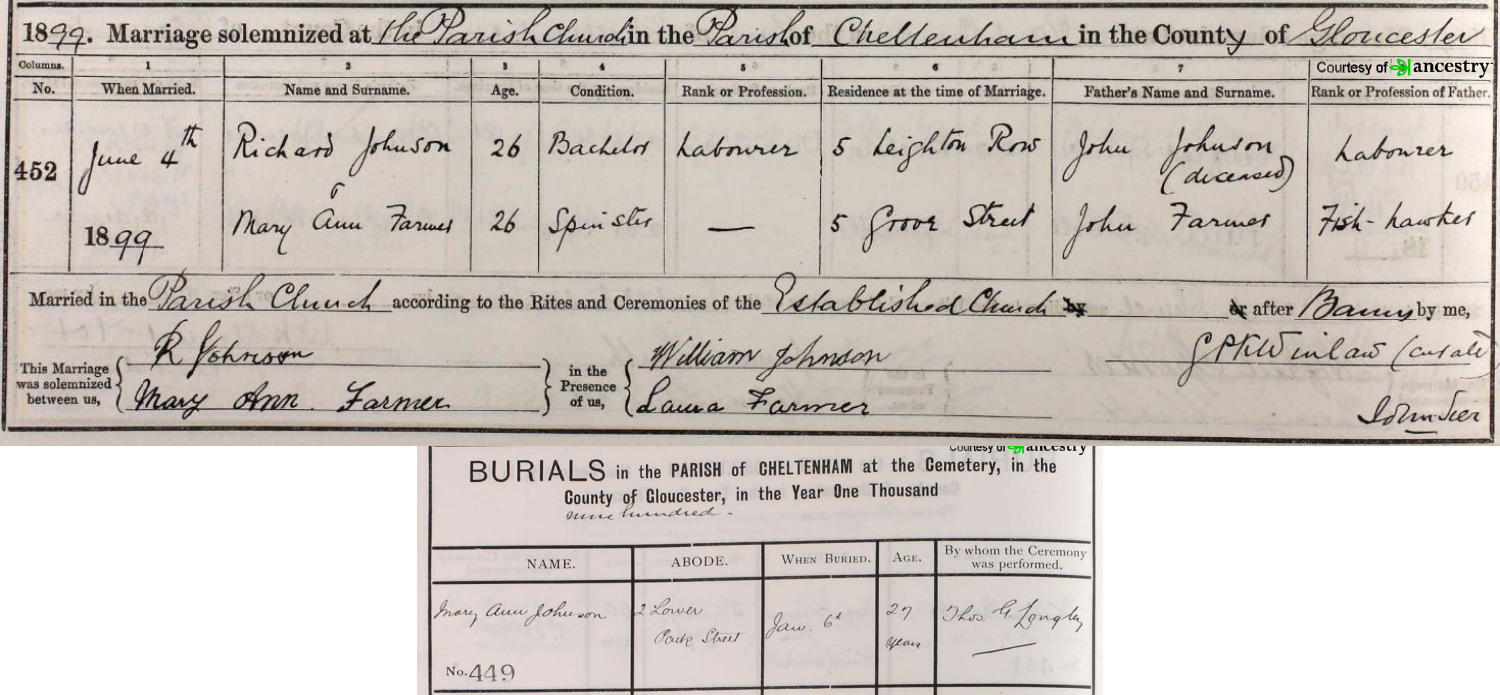 1899. Marriage solemnized at the Parish Church in the Parish of Cheltenham in the County of Gloucester
Columns. 1 2 3 4 5 6 7 Courtesy of ancestry
No. When Married. Name and Surname. Age. Condition. Rank or Profession. Residence at the time of Marriage. Father's Name and Surname. Rank or Profession of Father.
452 June 4th Richard Johnson 26 Bachelor Labourer 5 Leighton Row John Johnson (deceased) Labourer
1899 Mary Ann Farmer 26 Spinster — 5 Grove Street John Farmer Fish-hawker
Married in the Parish Church according to the Rites and Ceremonies of the Established Church by or after Banns by me,
This Marriage was solemnized between us, R Johnson in the Presence of us, William Johnson G P K Winlaw (curate)
Mary Ann Farmer Laura Farmer
Courtesy of ancestry
BURIALS in the PARISH of CHELTENHAM at the Cemetery, in the
County of Gloucester, in the Year One Thousand
nine hundred.
NAME. ABODE. WHEN BURIED. AGE. By whom the Ceremony was performed.
Mary Ann Johnson 2 Lower Park Street Jan. 6th 27 years Thos. G. Longley
No. 449